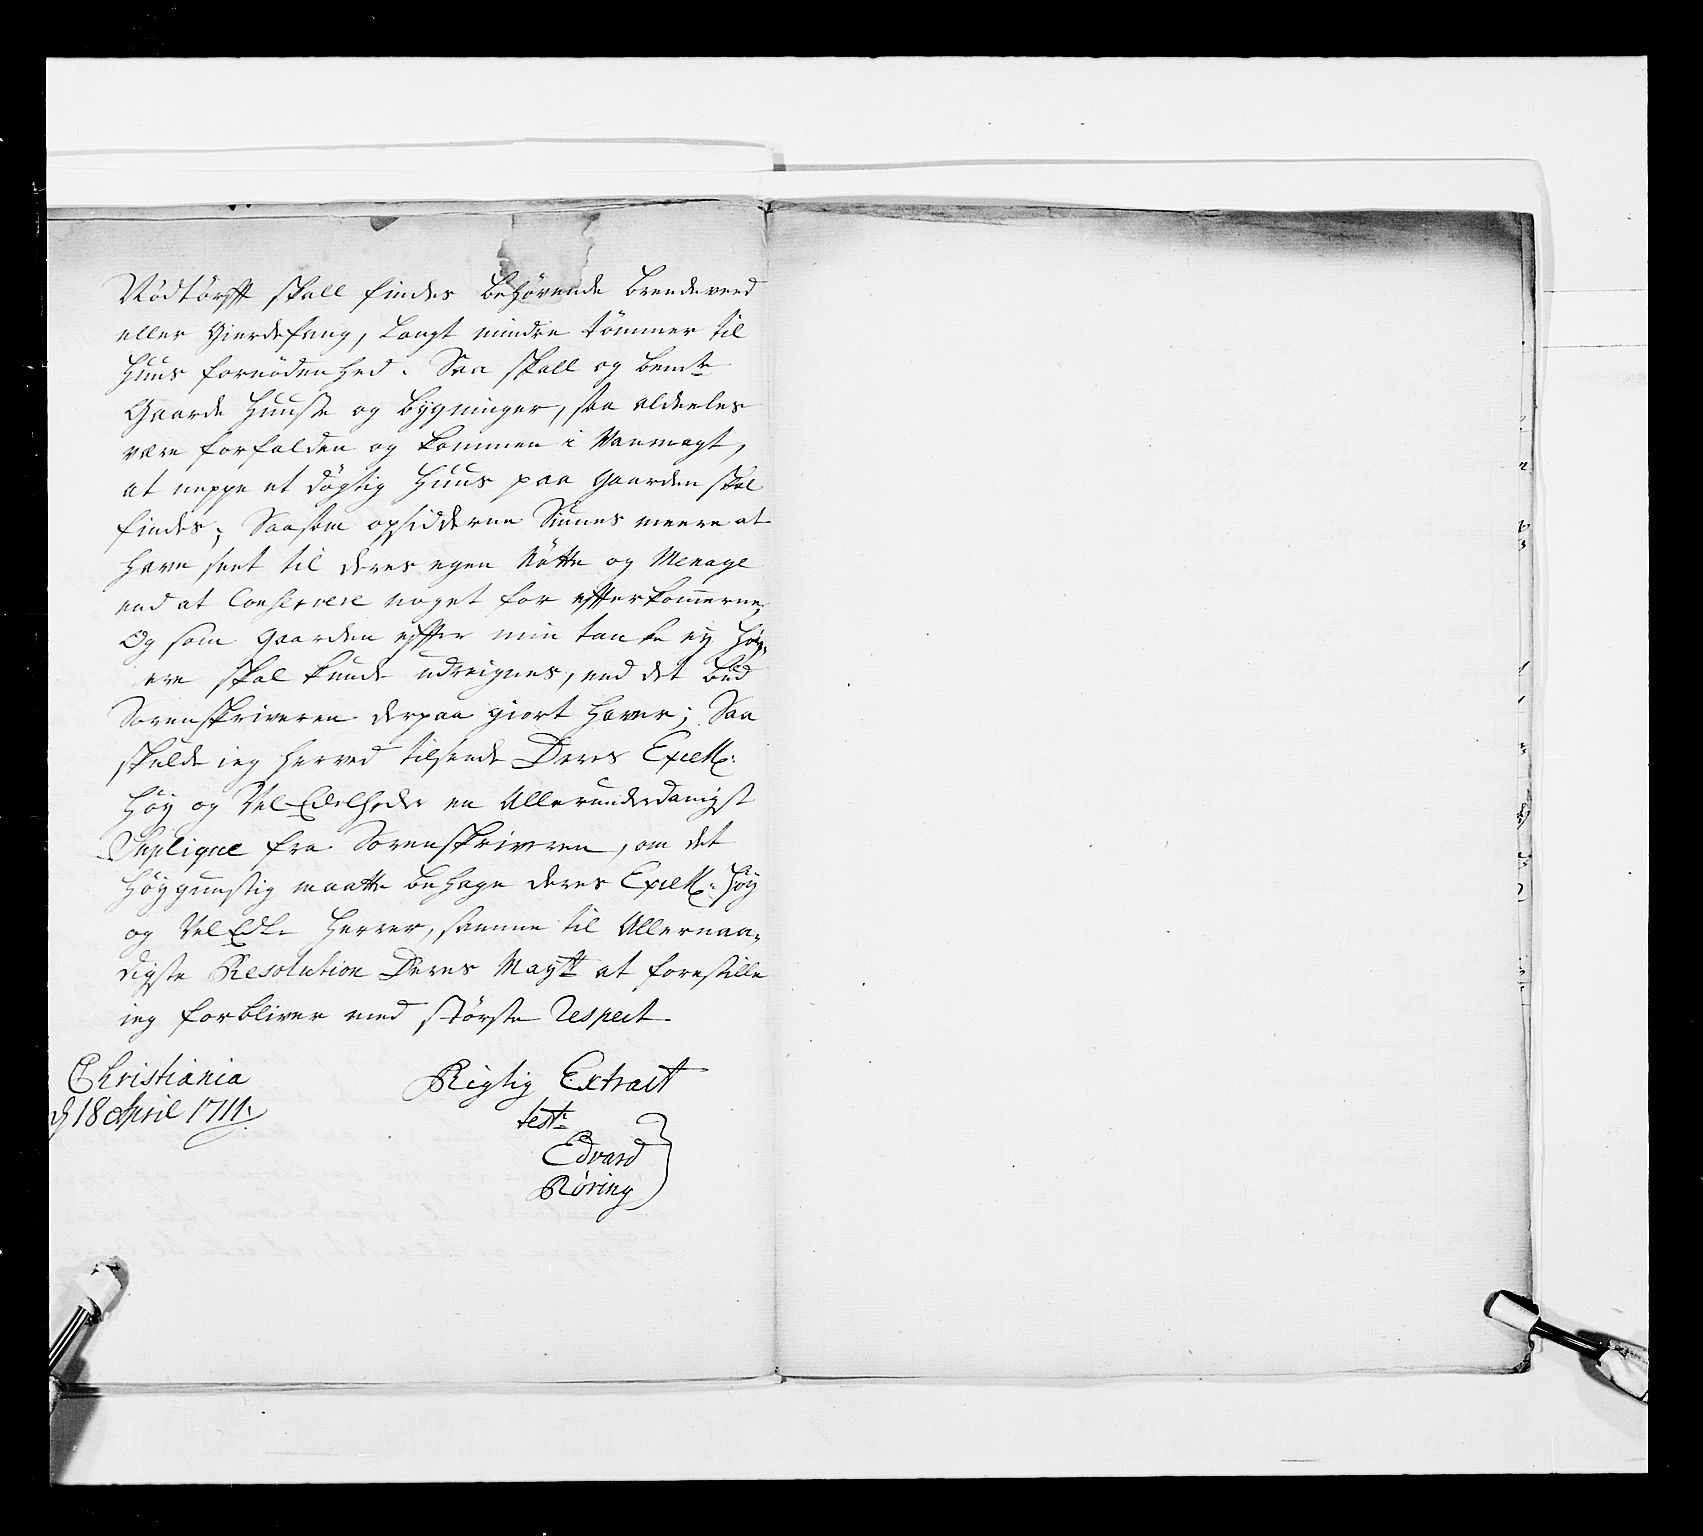 Nödtörfft skall findes behörende brendeveed
eller Gierdefang, langt mindre tömmer til
Huus fornödenhed. Saa skall og bemte
Gaarde Huuse og bygninger, saa aldeeles
være forfalden og kommen i Vanmagt,
at neppe et dögtig Huus paa Gaarden skal
findes; Saasom opsidderne Siunes meere at
have seet til deres egen Nötte og Menage
end at Conservere noget for effterkommerne,
Og som Gaarden effter min tanke ey Höy-
ere skal kunde udreignes, end det bud
Sorenskriveren derpaa giort haver; Saa
skulde ieg herved tilsende Deres Excell:
Höy og Vel Edelheder en Allerunderdanigst
Suplique fra Sorenskriveren, om det
höygunstig maatte behage deres Excell: Höy
og Vel Edle Herrer, samme til Allernaa-
digste Resolution Deres Maytt at forestille
ieg forbliver med störste Respect.
Christiania
d 18 April 1711.
Rigtig Extract
test:
Edvard
Röring